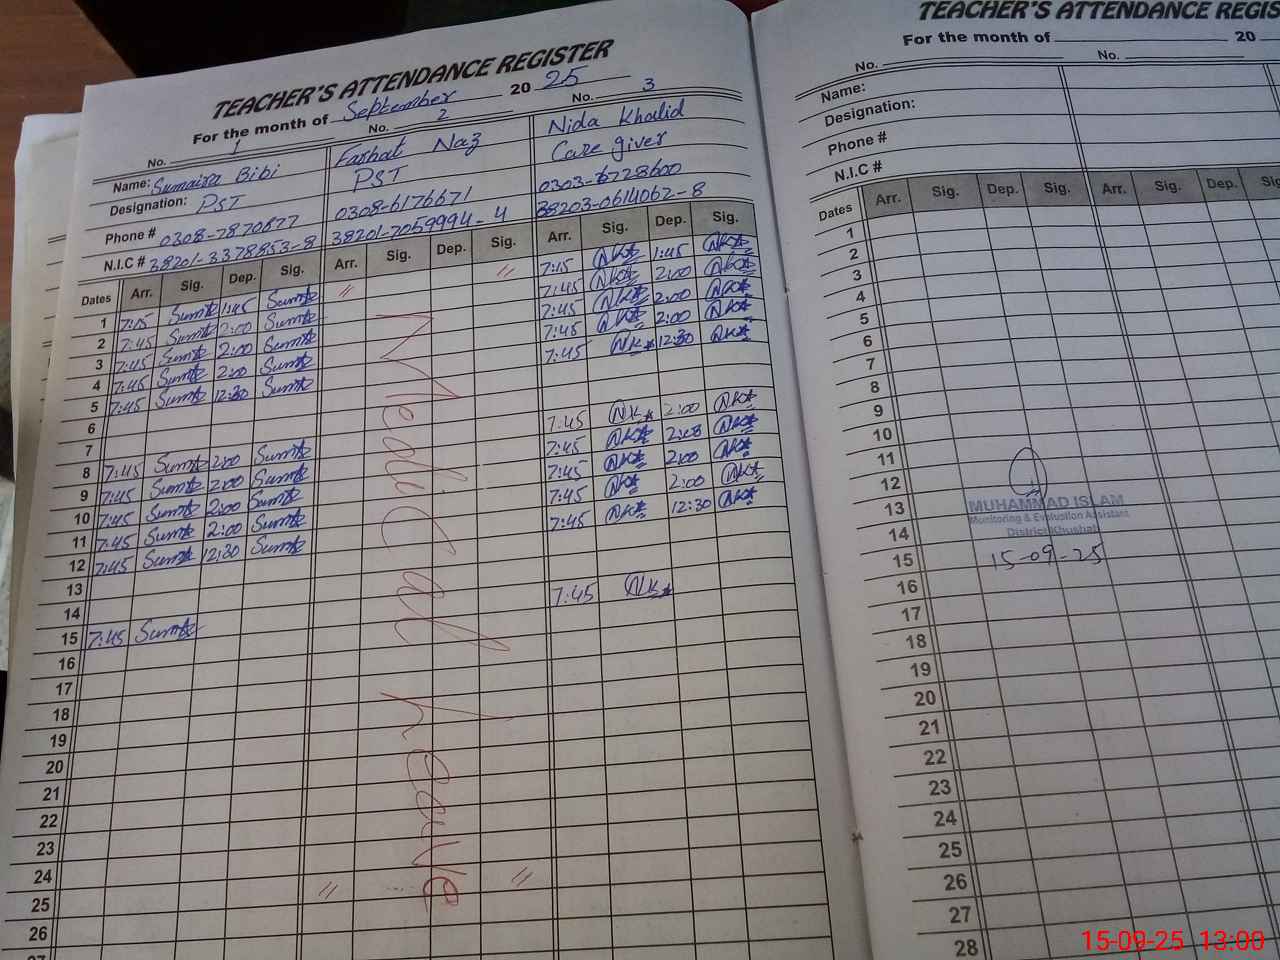 TEACHER'S ATTENDANCE REGISTER
For the month of September 20 25
No. 1 No. 2 No. 3
Name: Sumaira Bibi Farhat Naz Nida Khalid
Designation: PST PST Care giver
Phone # 0308-7870877 0308-6176671 0303-6728600
N.I.C # 38201-3378853-8 38201-7059994-4 38203-0614062-8
Dates Arr. Sig. Dep. Sig. Arr. Sig. Dep. Sig. Arr. Sig. Dep. Sig.
1 7:15 1:45 7:15 1:45
2 7:45 2:00 7:45 2:00
3 7:45 2:00 7:45 2:00
4 7:45 2:00 7:45 2:00
5 7:45 12:30 7:45 12:30
6
7
8 7:45 2:00 7:45 2:00
9 7:45 2:00 7:45
10 7:45 2:00 7:45 2:00
11 7:45 2:00 7:45 2:00
12 7:45 12:30 7:45 12:30
13
14
15 7:45 7:45
16
17
18
19
20
21
22
23
24
25
26
27
Medical leave
TEACHER'S ATTENDANCE REGIS
For the month of 20
No. No.
Name:
Designation:
Phone #
N.I.C #
Dates Arr. Sig. Dep. Sig. Arr. Sig. Dep. Sig
1
2
3
4
5
6
7
8
9
10
11
12
13
14
15
16
17
18
19
20
21
22
23
24
25
26
27
28
MUHAMMAD ISLAM
Monitoring & Evaluation Assistant
District Khushab
15-09-25
15-09-25 13:00